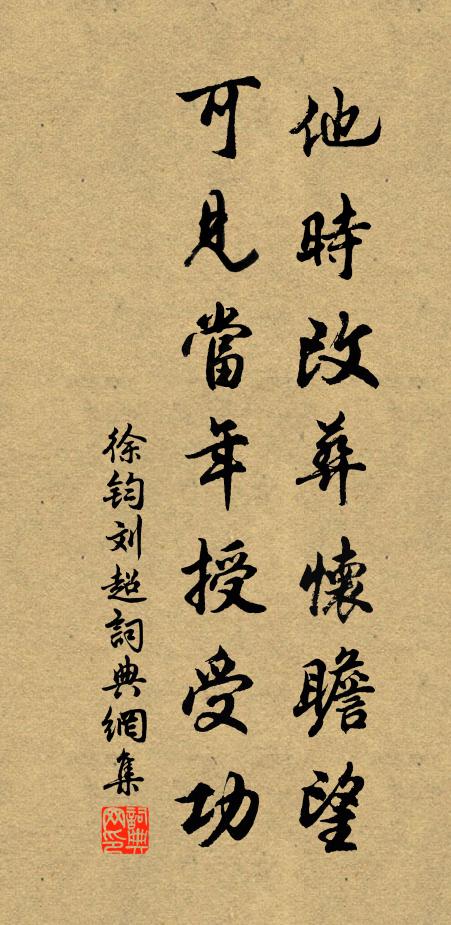 他時改葬懷瞻望
可見當年授受功
徐钧刘超詞典網集
詞典网印